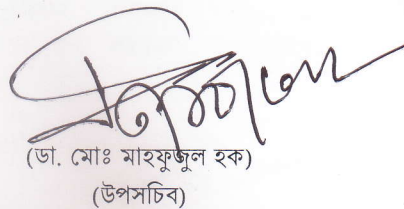 (ডা. মোঃ মাহফুজুল হক)
(উপসচিব)